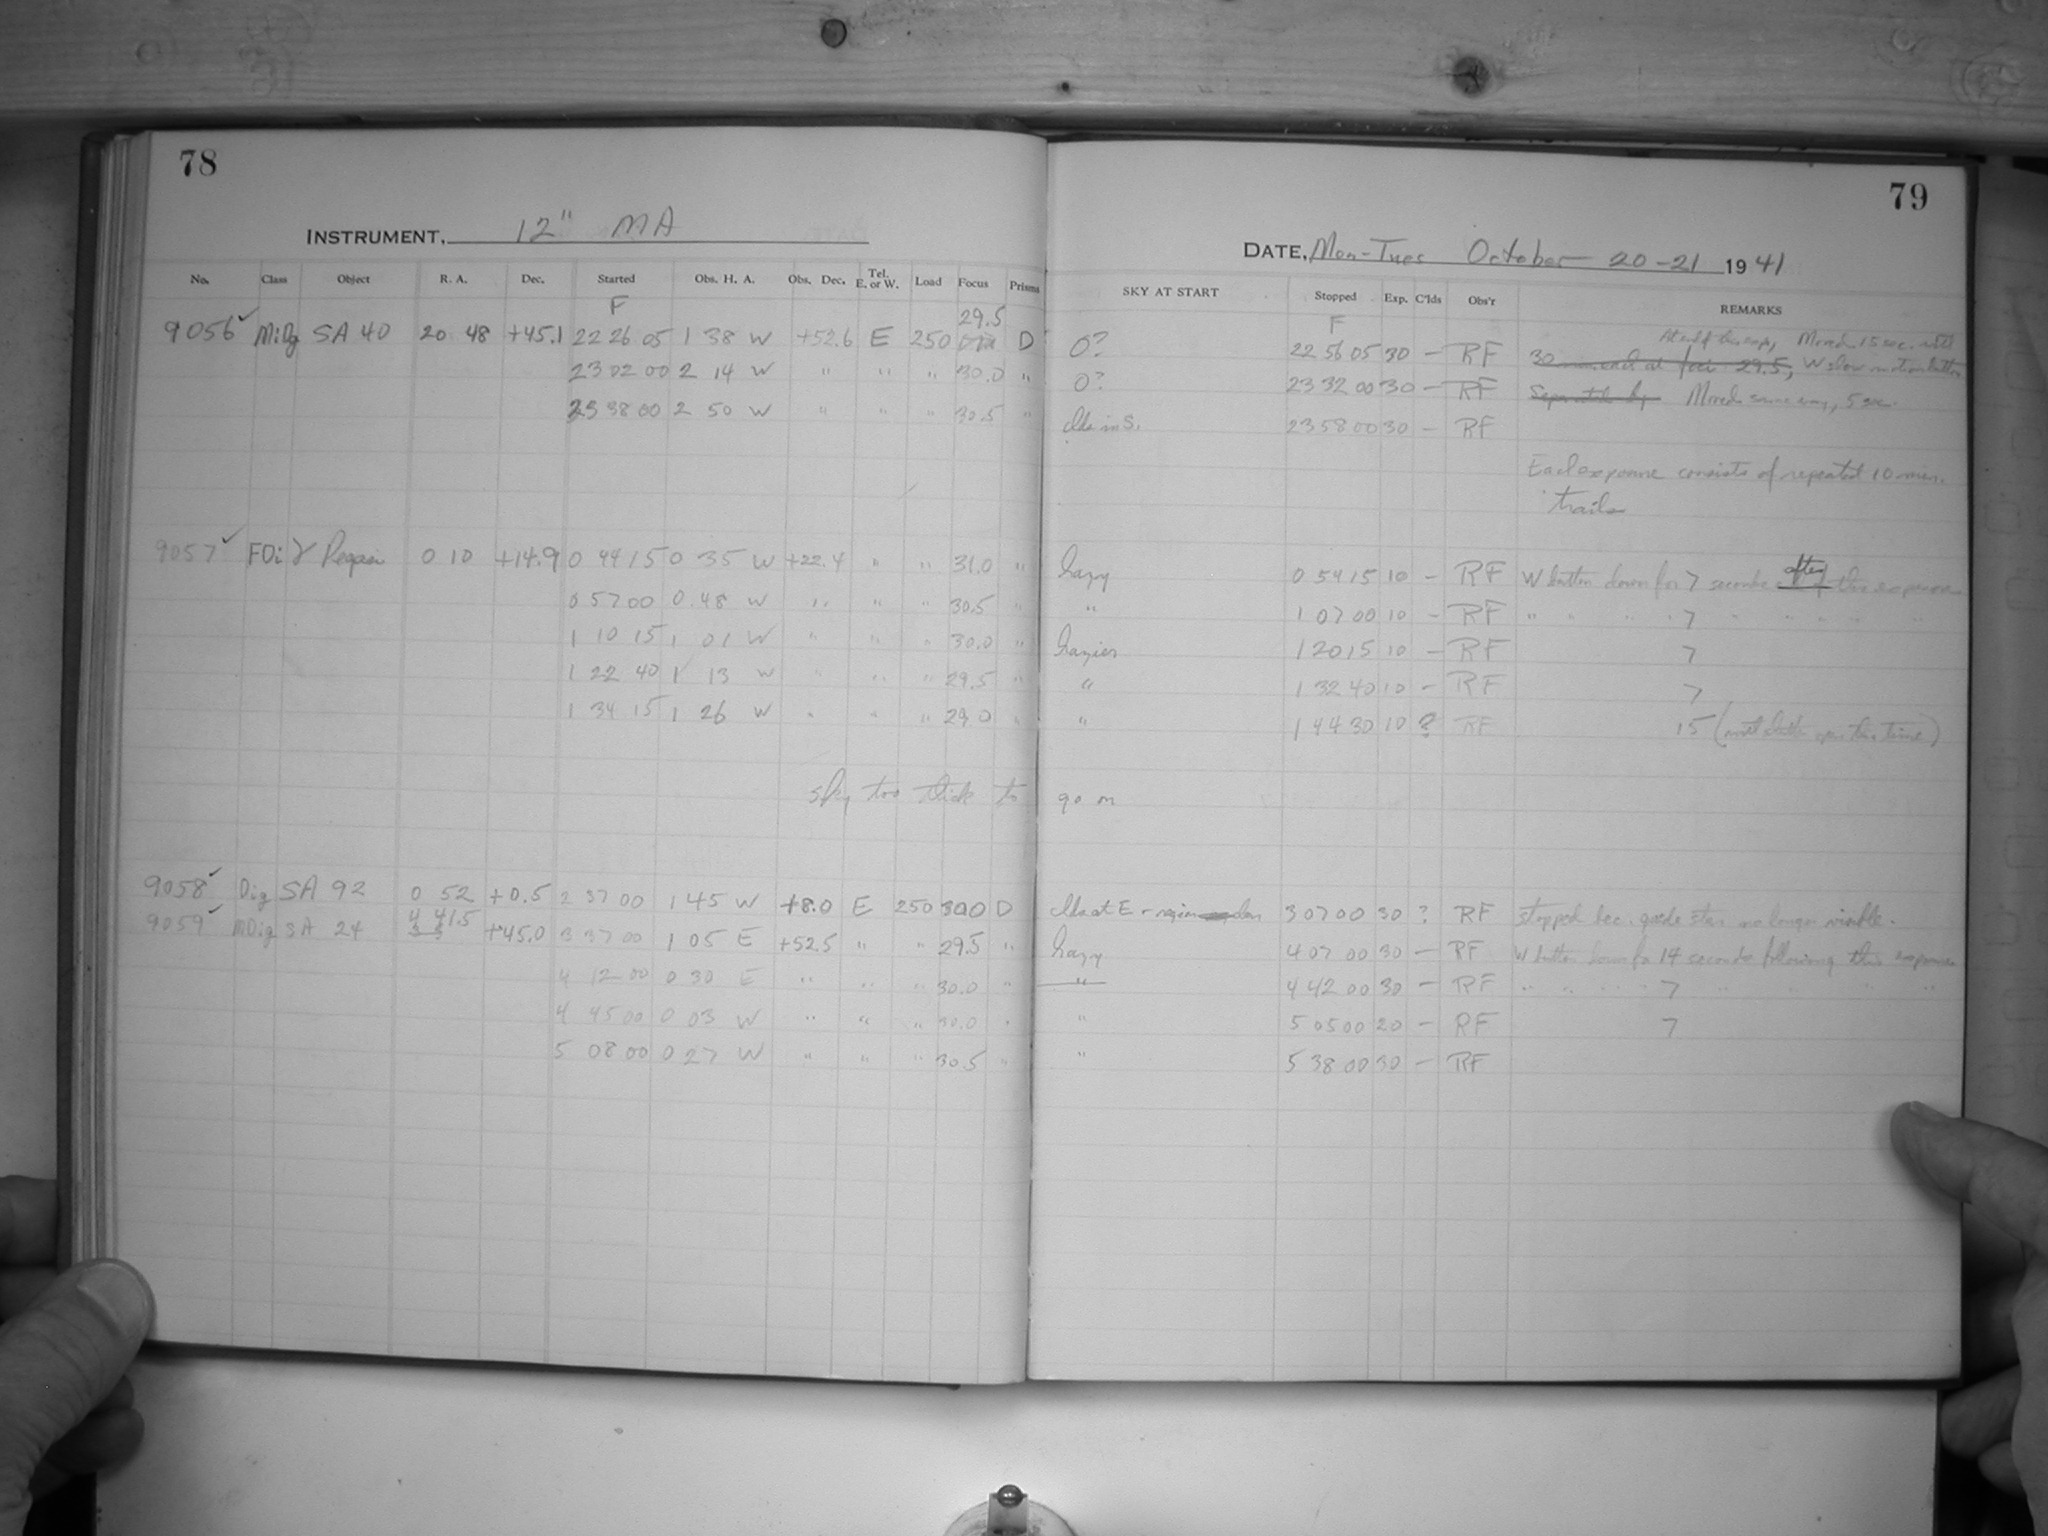 78
INSTRUMENT, 12" MA
No. Class Object R. A. Dec. Started Obs. H. A. Obs. Dec. Tel. E. or W. Load Focus Prisms
F
29.5
9056 ✓ SA 40 20 48 +45.1 22 26 05 1 38 W +52.6 E 250 D
23 02 00 2 14 W " " " 30.0 "
23 38 00 2 50 W " " " 30.5 "
9057 ✓ FDi γ 0 10 +14.9 0 44 15 0 35 W +22.4 " " 31.0 "
0 57 00 0 48 W " " " 30.5 "
1 10 15 1 01 W " " " 30.0 "
1 22 40 1 13 W " " " 29.5 "
1 34 15 1 26 W " " " 29.0 "
Sky too thick to
9058 ✓ Dig SA 92 0 52 +0.5 2 37 00 1 45 W +8.0 E 250 30.0 D
9059 ✓ MDig SA 24 +45.0 3 37 00 1 05 E +52.5 " " 29.5 "
4 12 00 0 30 E " " " 30.0 "
4 45 00 0 03 W " " " 30.0 "
5 08 00 0 27 W " " " 30.5 "
79
DATE, Mon-Tues October 20-21 1941
SKY AT START Stopped Exp. C'lds Obs'r REMARKS
F
At end of this exp, Moved 15 sec. with
0? 22 56 05 30 - RF 30 each at foci 29.5, W slow motion button
0? 23 32 00 30 - RF Separated by Moved same way, 5 sec.
Clds in S. 23 58 00 30 - RF
Each exposure consists of repeated 10 min.
trails
hazy 0 54 15 10 - RF W button down for 7 seconds after this exposure
" 1 07 00 10 - RF " " " " 7 " " " " "
hazier 1 20 15 10 - RF 7
" 1 32 40 10 - RF 7
" 1 44 30 10 ? RF 15 ( this time)
go on
Clds at E - 3 07 00 30 ? RF stopped bec. guide star no longer visible.
hazy 4 07 00 30 - RF W button down for 14 seconds following this exposure
" 4 42 00 30 - RF " " " " 7 " " " "
" 5 05 00 20 - RF 7
" 5 38 00 30 - RF